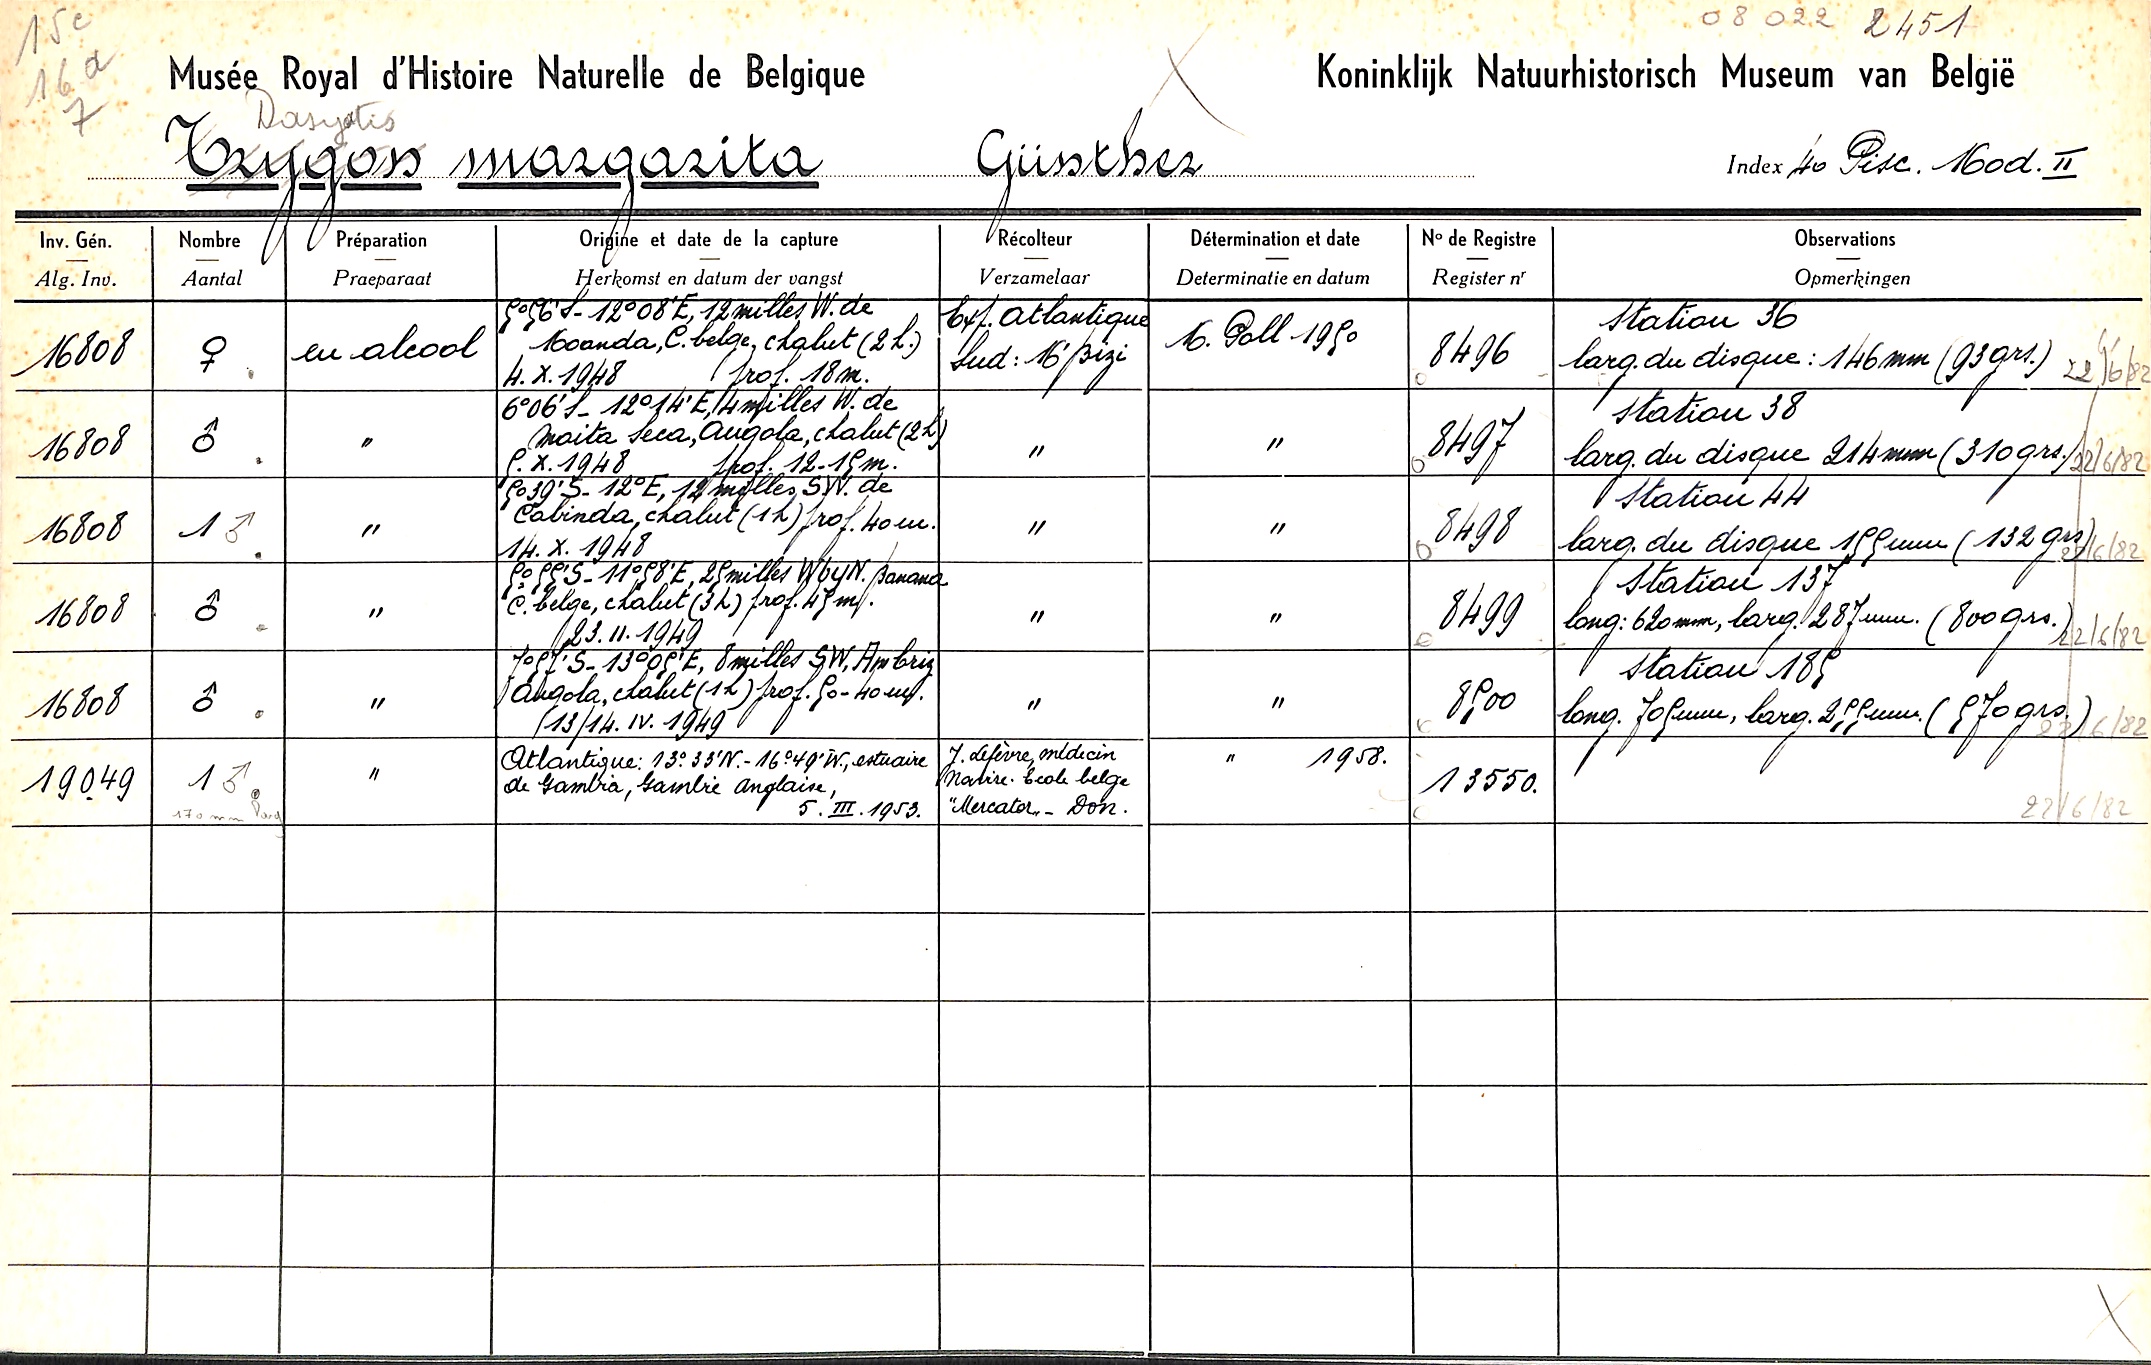 15c
16d
7
08 022 2451
Musée Royal d'Histoire Naturelle de Belgique
Koninklijk Natuurhistorisch Museum van België
Dasyatis
Trygon margarita Günther
Index 40 Pisc. Mod. II
Inv. Gén. Nombre Préparation Origine et date de la capture Récolteur Détermination et date No de Registre Observations
Alg. Inv. Aantal Praeparaat Herkomst en datum der vangst Verzamelaar Determinatie en datum Register nr Opmerkingen
5°56'S - 12°08'E, 12 milles W. de
Moanda, C. belge, chalut (2 h.)
4.X.1948 prof. 18 m.
16808 ♀ en alcool
Exp. Atlantique
Sud: M'Bizi
M. Poll 1950
8496
Station 36
larg. du disque: 146 mm (93 grs.) 22/6/82
6°06'S - 12°14'E, 4 milles W. de
Moita Seca, Angola, chalut (2 h)
5.X.1948 prof. 12-15 m.
16808 ♂ " " " 8497
Station 38
larg. du disque 214 mm (310 grs.) 22/6/82
5°39'S - 12°E, 12 milles SW. de
Cabinda, chalut (1 h) prof. 40 m.
14.X.1948
16808 1 ♂ " " " 8498
Station 44
larg. du disque 155 mm (132 grs) 22/6/82
5°55'S - 11°58'E, 25 milles W by N. Banana
C. belge, chalut (3 h) prof. 45 m.
23.II.1949
16808 ♂ " " " 8499
Station 137
long: 620 mm, larg. 287 mm. (800 grs.) 22/6/82
7°57'S - 13°05'E, 8 milles SW. Ambriz
Angola, chalut (1 h) prof. 50-40 m.
13/14.IV.1949
16808 ♂ " " " 8500
Station 185
long. 705 mm, larg. 255 mm. (570 grs.) 22/6/82
Atlantique: 13°33'N. - 16°49'W., estuaire
de Gambia, Gambie anglaise,
5.III.1953.
19049 1 ♂ "
170 mm larg
J. Lefèvre, médecin
Navire-Ecole belge
"Mercator" - Don.
" 1958.
13550.
22/6/82